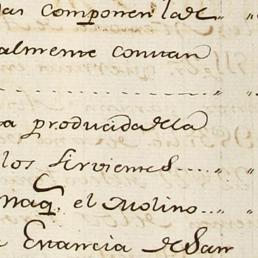 das componen la de
almente conv an
a producida de la
los servientes
naq. el Molino
e Enancia de San